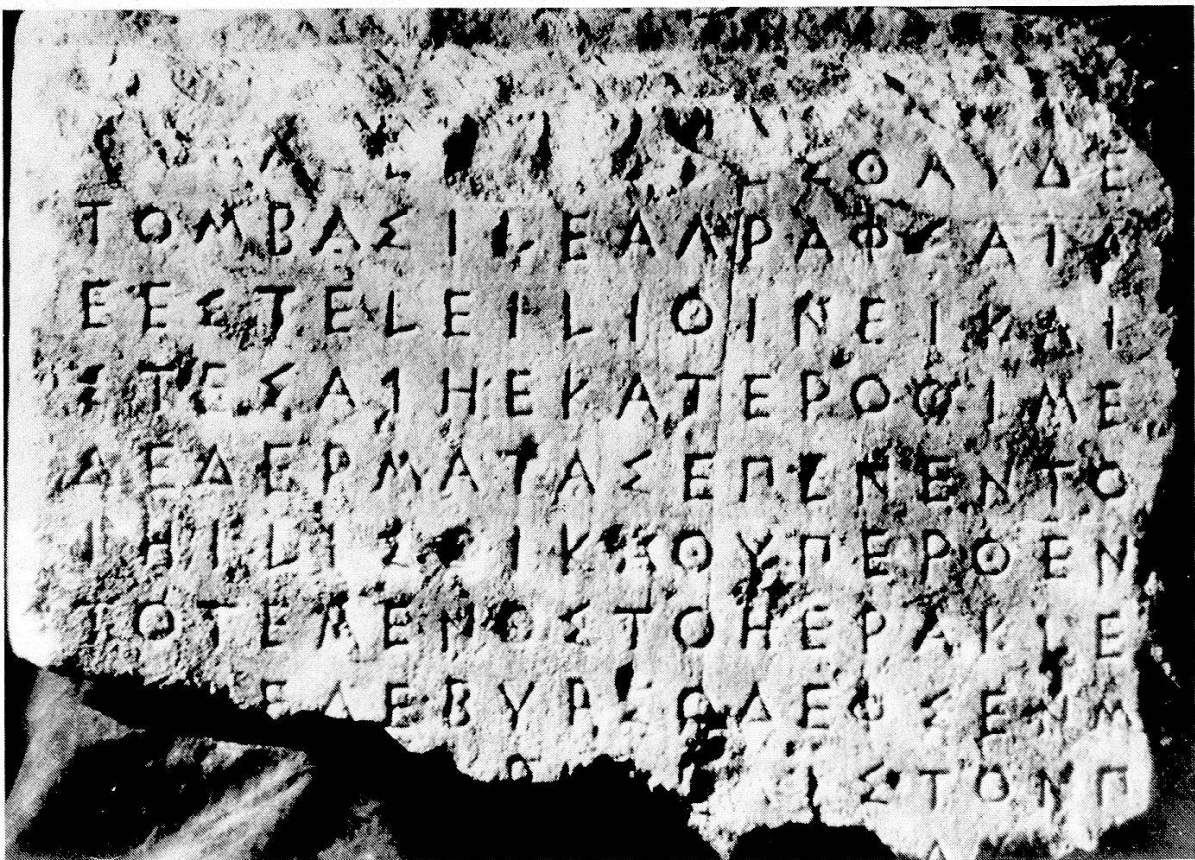 ΣΘΑΙΔΕ
ΤΟΜΒΑΣΙΛΕΑΓΡΑΦΣΑΙΔ
ΕΕΣΤΕΛΕΙΛΙΘΙΝΕΙΚΑΙ
ΣΤΕΣΑΙΗΕΚΑΤΕΡΟΘΙΜΕ
ΔΕΔΕΡΜΑΤΑΣΕΠΕΝΕΝΤΟ
ΙΗΙΛΙΣΟΙΚΑΘΥΠΕΡΘΕΝ
ΤΟΤΕΜΕΝΟΣΤΟΗΕΡΑΚΛΕ
ΕΔΕΒΥΡΣΟΔΕΦΣΕΝΜ
ΣΤΟΝΠ